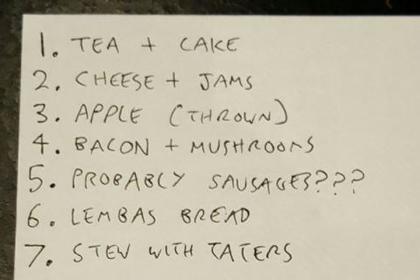 1. TEA + CAKE
2. CHEESE + JAMS
3. APPLE (THROWN)
4. BACON + MUSHROOMS
5. PROBABLY SAUSAGES???
6. LEMBAS BREAD
7. STEW WITH TATERS